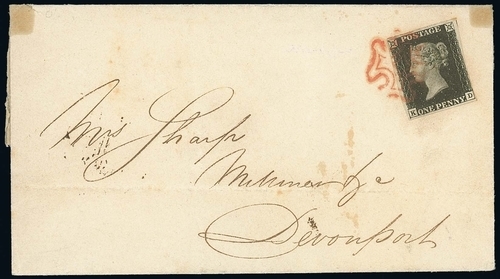 POSTAGE
ONE PENNY
D
Mrs Sharp
Milliner &c
Devonport